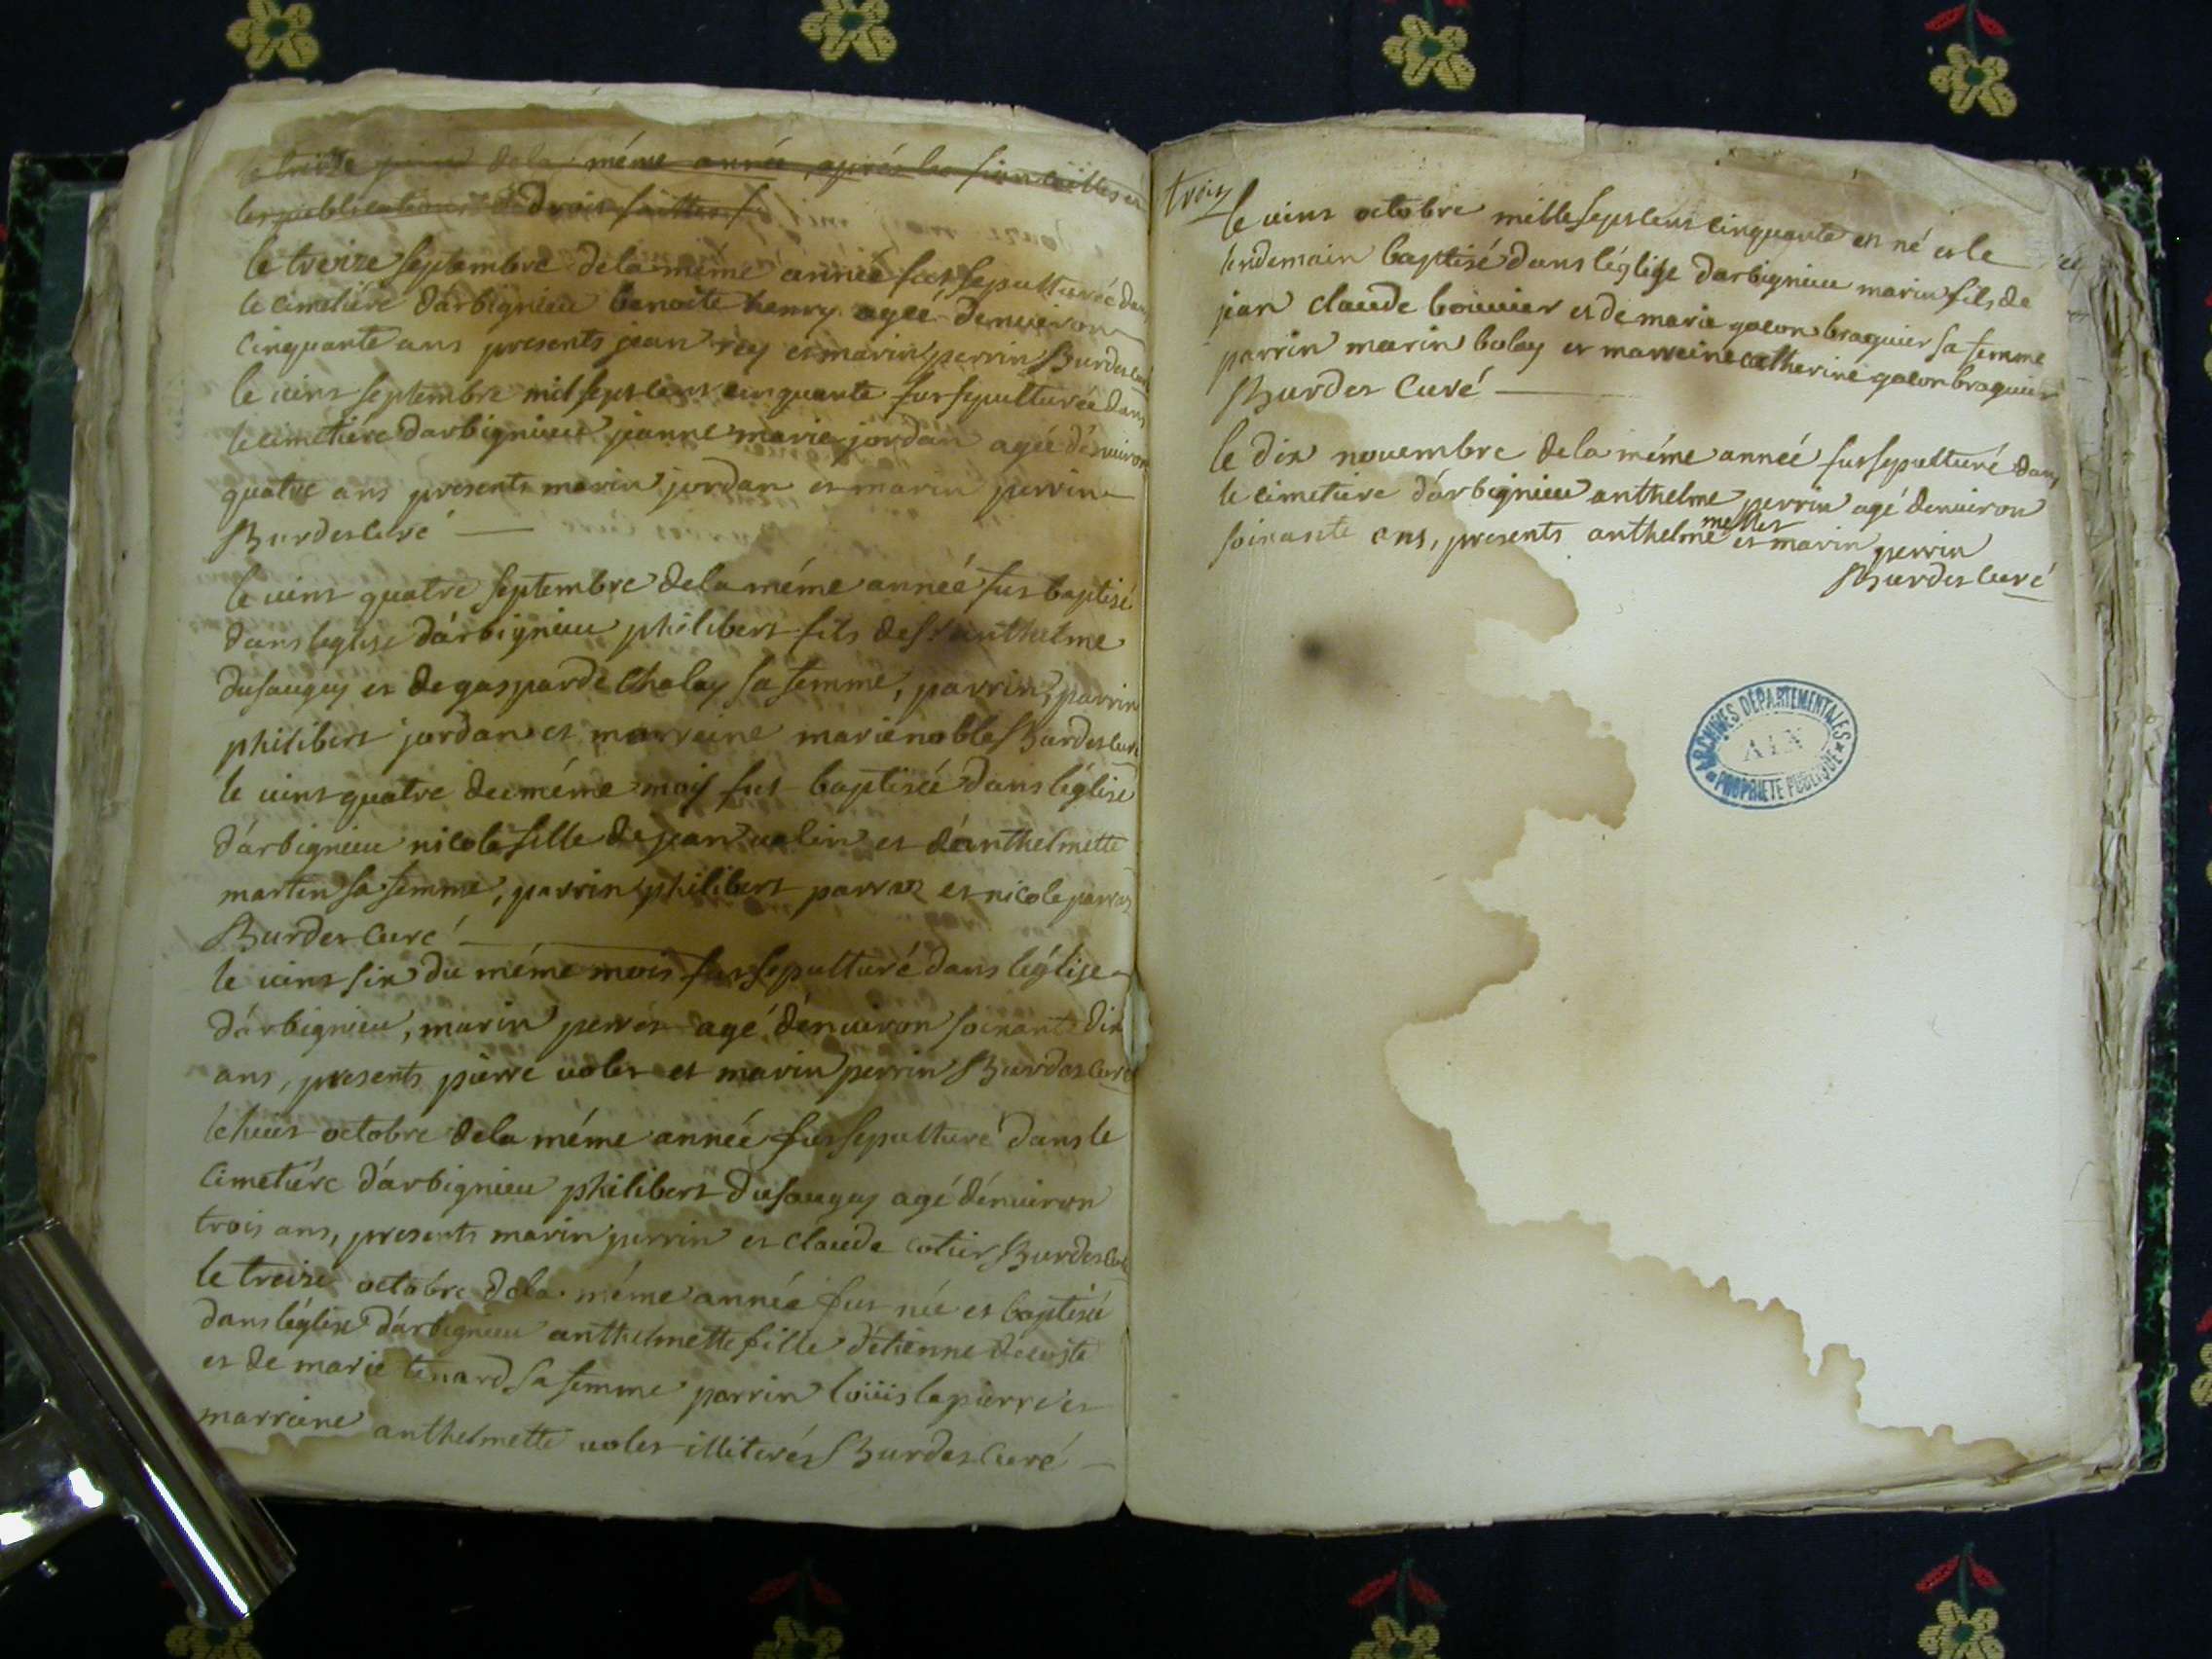 le treize juin de la méme année, aprés les fiancailles et
les publications de droit faittes f
le treize septembre de la méme année fut sepulturée dans
le cimetiére d'arbignieu benoite henry agée denuiron
cinquante ans presents jean rey et marin perrin Burdet curé
le uint septembre mil sept cent cinquante fut sepulturée dans
le cimetiére d'arbignieu jeanne marie jordan agée dénuiron
quatre ans presents marin jordan et marin perrin
Burdet curé
le uint quatre septembre de la méme année fut baptisé
dans leglise d'arbignieu philibert fils de anthelme
dusauguy et de gasparde chalay sa femme, parrin, parrin
philibert jordan et marraine marie noble Burdet curé
le uint quatre du méme mois fut baptisée dans léglise
d'arbignieu nicole fille de jean ualin et d'anthelmette
martin sa femme, parrin philibert parraz et nicole parraz
Burdet curé
le uint six du méme mois fut sepulturé dans léglise
d'arbignieu, marin perret agé dénuiron soixante dix
ans, presents pierre uolet et marin perrin Burdet curé
le huit octobre de la méme année fut sepulturé dans le
cimetiére d'arbignieu philibert dusauguy agé dénuiron
trois ans, presents marin perrin et claude cotier Burdet curé
le treize octobre de la méme année fut née et baptisée
dans léglise d'arbignieu anthelmette fille d'etienne
et de marie tenard sa femme parrin loüis lapierre et
marreine anthelmette uolet illiterés Burdet curé
trois
le uint octobre mille sept cent cinquante est né et le
lendemain baptisé dans léglise d'arbignieu marin fils de
jean claude bouuier et de marie galon braguier sa femme
parrin marin bolay et marreine catherine galon braguier
Burdet Curé
le dix nouembre de la méme année fut sepulturé dans
le cimetiere d'arbignieu anthelme perrin agé denuiron
mellet
soixante ans, presents anthelme et marin perrin
Burdet curé
ARCHIVES DÉPARTEMENTALES
AIN
PROPRIÉTÉ PUBLIQUE